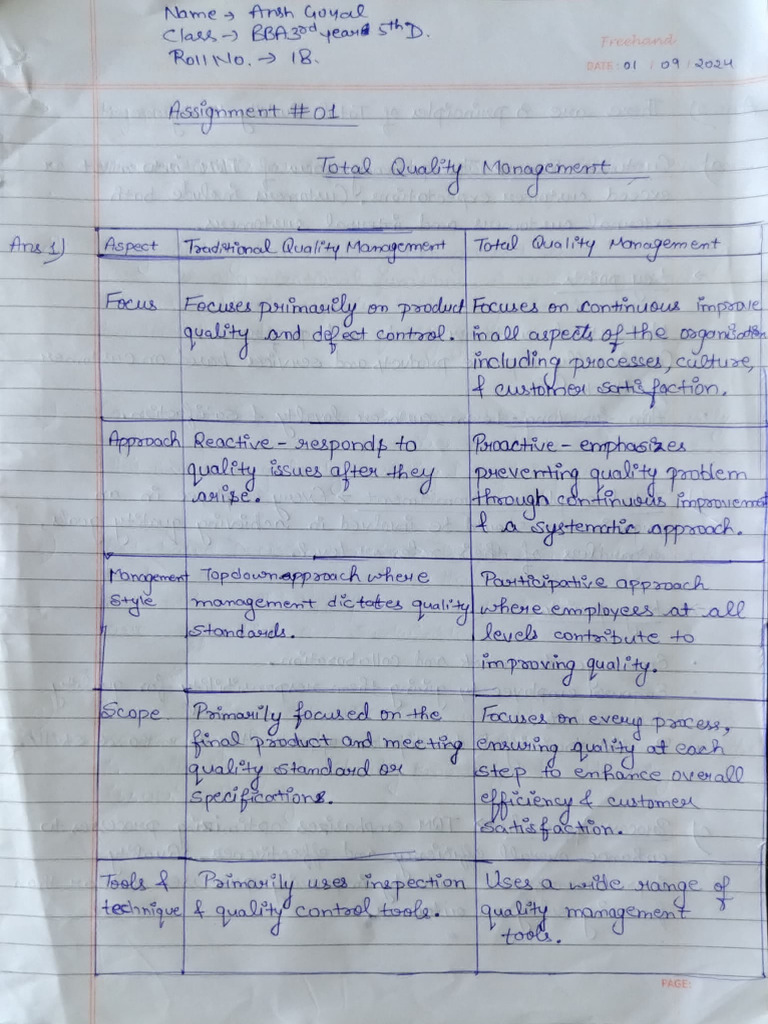 Name → Ansh Goyal
Class → BBA 3rd year 5th D.
Roll No. → 18.
Freehand
DATE: 01 / 09 / 2024
Assignment #01
Total Quality Management
Ans 1)
Aspect
Traditional Quality Management
Total Quality Management
Focus
Focuses primarily on product
quality and defect control.
Focuses on continuous improve
in all aspects of the organisation
including processes, culture,
& customer satisfaction.
Approach
Reactive - responds to
quality issues after they
arise.
Proactive - emphasizes
preventing quality problem
through continuous improvement
& a systematic approach.
Management
Style
Topdown approach where
management dictates quality
standards.
Participative approach
where employees at all
levels contribute to
improving quality.
Scope
Primarily focused on the
final product and meeting
quality standard or
specifications.
Focuses on every process,
ensuring quality at each
step to enhance overall
efficiency & customer
satisfaction.
Tools &
technique
Primarily uses inspection
& quality control tools.
Uses a wide range of
quality management
tools.
PAGE: